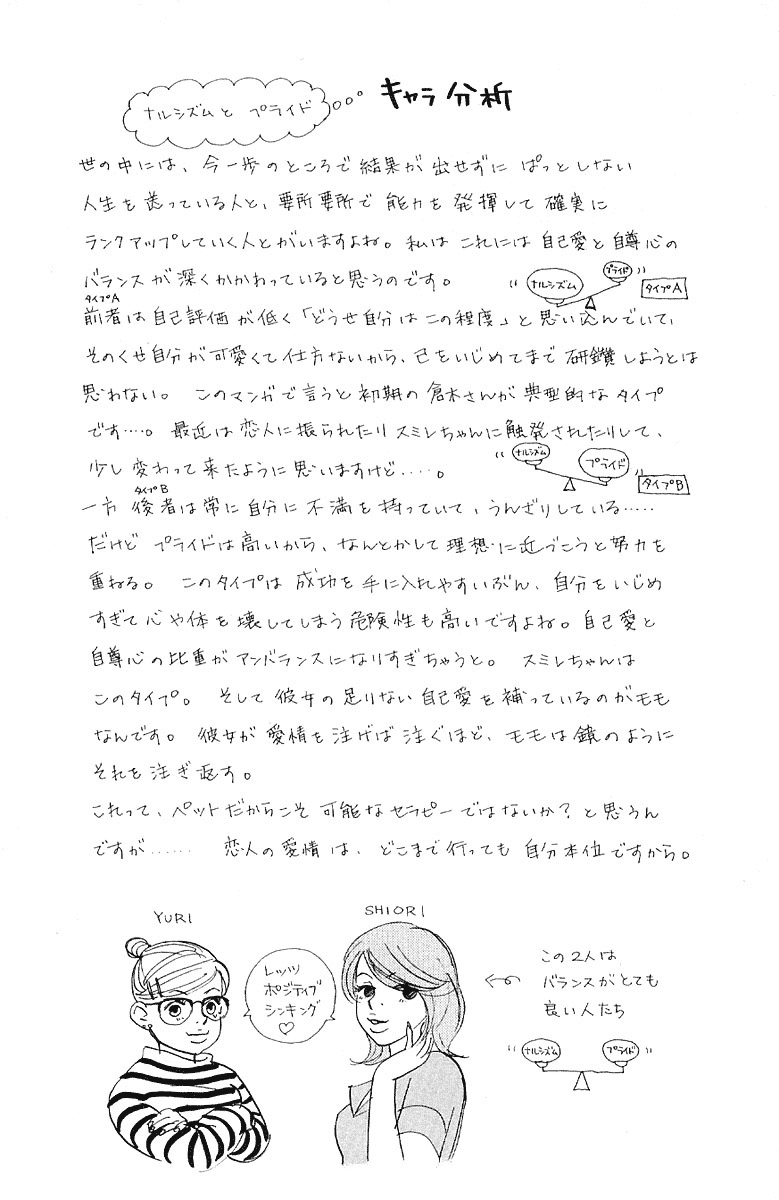 ナルシズムと プライド
キャラ分析
世の中には、今一歩のところで結果が出せずに ぱっとしない
人生を送っている人と、要所要所で能力を発揮して確実に
ランクアップしていく人とがいますよね。私は これには自己愛と自尊心の
バランスが深くかかわっていると思うのです。
ナルシズム
プライド
タイプA
タイプA
前者は自己評価が低く「どうせ自分はこの程度」と思い込んでいて、
そのくせ自分が可愛くて仕方ないから、己をいじめてまで研鑽しようとは
思わない。 このマンガで言うと初期の倉木さんが典型的なタイプ
です…。 最近は恋人に振られたりスミレちゃんに触発されたりして、
少し変わって来たように思いますけど……。
ナルシズム
プライド
タイプB
タイプB
一方 後者は常に自分に不満を持っていて、うんざりしている……
だけど プライドは高いから、なんとかして理想に近づこうと努力を
重ねる。 このタイプは成功を手に入れやすいぶん、自分をいじめ
すぎて心や体を壊してしまう危険性も高いですよね。自己愛と
自尊心の比重がアンバランスになりすぎちゃうと。 スミレちゃんは
このタイプ。 そして彼女の足りない自己愛を補っているのがモモ
なんです。 彼女が愛情を注げば注ぐほど、モモは鏡のように
それを注ぎ返す。
これって、ペットだからこそ可能なセラピーではないか？と思うん
ですが…… 恋人の愛情は、どこまで行っても自分本位ですから。
YURI
SHIORI
レッツ
ポジティブ
シンキング
♡
この2人は
バランスがとても
良い人たち
ナルシズム
プライド